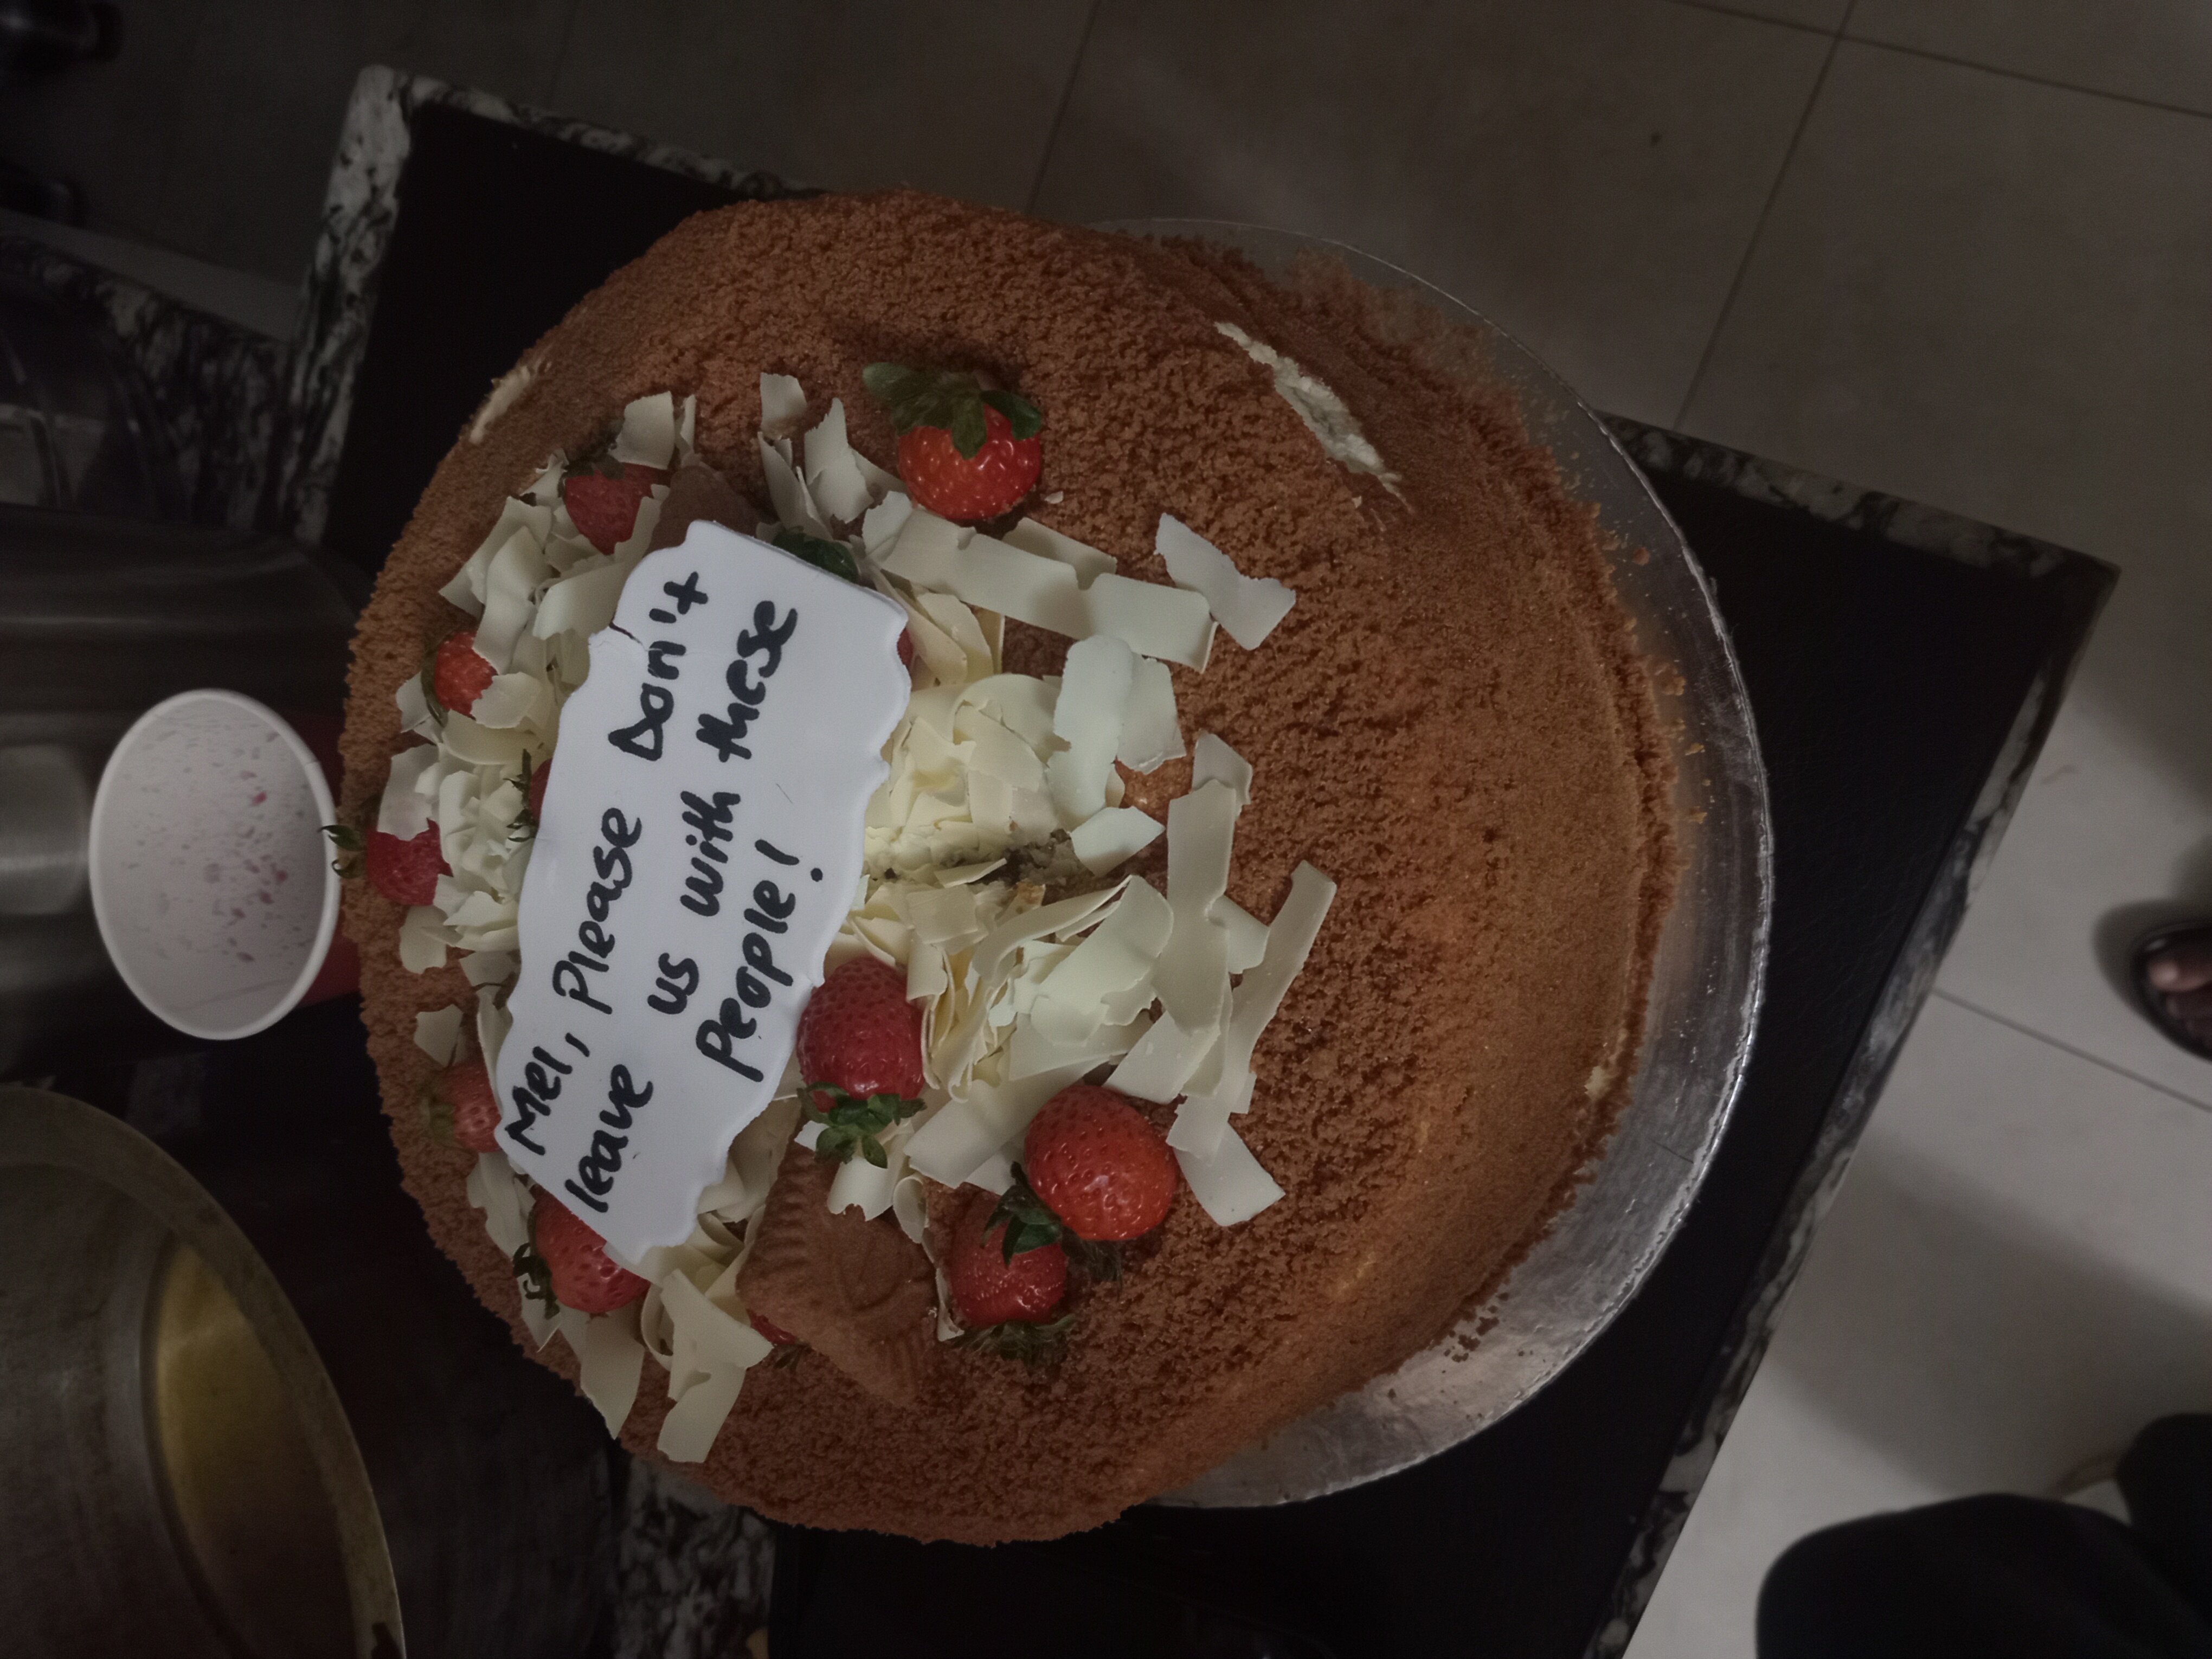 Mel, Please Don't
leave us with these
People!